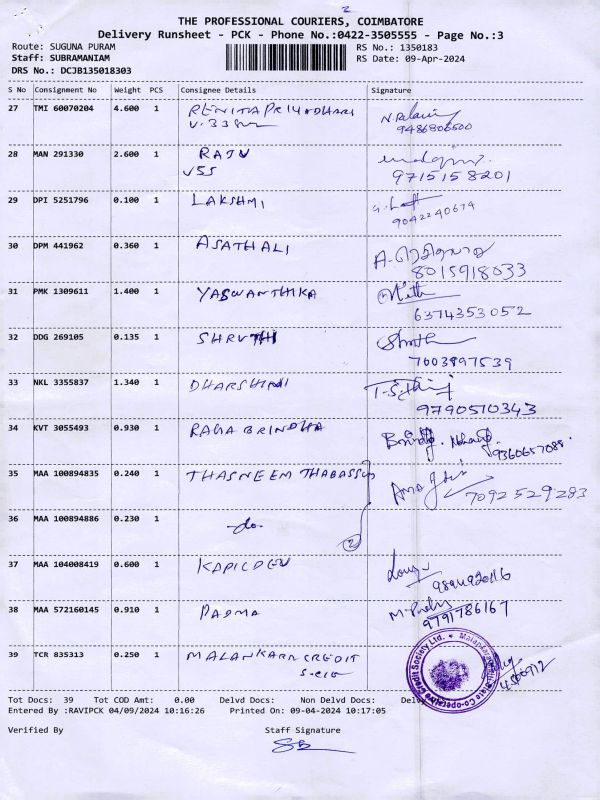 2
THE PROFESSIONAL COURIERS, COIMBATORE
Delivery Runsheet - PCK - Phone No.:0422-3505555 - Page No.:3
Route: SUGUNA PURAM
RS No.: 1350183
Staff: SUBRAMANIAM
RS Date: 09-Apr-2024
DRS No.: DCJB135018303
S No Consignment No Weight PCS Consignee Details Signature
27 TMI 60070204 4.600 1 RENITAPRIYADHARI
9486806500
28 MAN 291330 2.600 1 RAJU
VSS
9715158201
29 DPI 5251796 0.100 1 LAKSHMI
9042240674
30 DPM 441962 0.360 1 ASATHALI
8015918033
31 PMK 1309611 1.400 1 YASWANTHIKA
6374353052
32 DDG 269105 0.135 1 SHRUTHI
7003897539
33 NKL 3355837 1.340 1 DHARSHINI
9790510343
34 KVT 3055493 0.930 1 RAGA BRINDHA
35 MAA 100894835 0.240 1 THASNEEM THABASSUM
7092529283
36 MAA 100894886 0.230 1 -do-
2
37 MAA 104008419 0.600 1 KAPILDEV
38 MAA 572160145 0.910 1 PADMA
9791786167
39 TCR 835313 0.250 1 MALANKARA CREDIT
Tot Docs: 39 Tot COD Amt: 0.00 Delvd Docs: Non Delvd Docs:
Entered By :RAVIPCK 04/09/2024 10:16:26 Printed On: 09-04-2024 10:17:05
Verified By Staff Signature